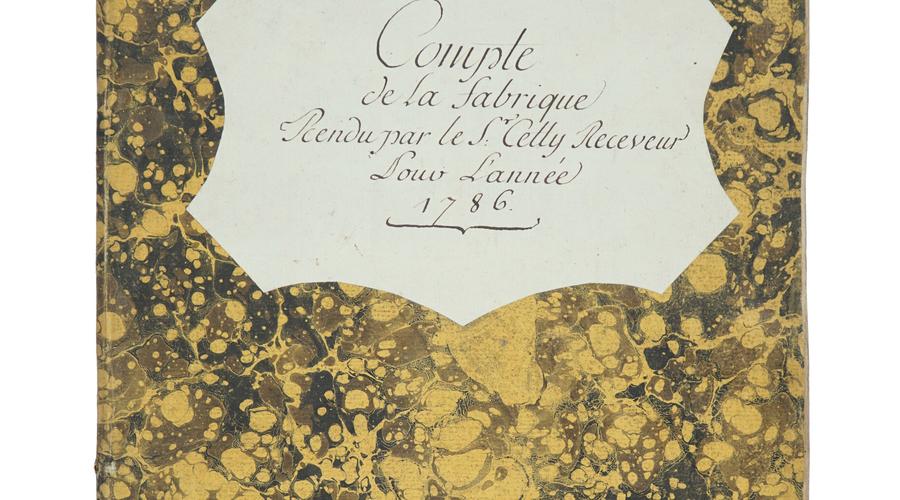 Compte
de la fabrique
Rendu par le Sr. Celly Receveur
Pour L'année
1786.